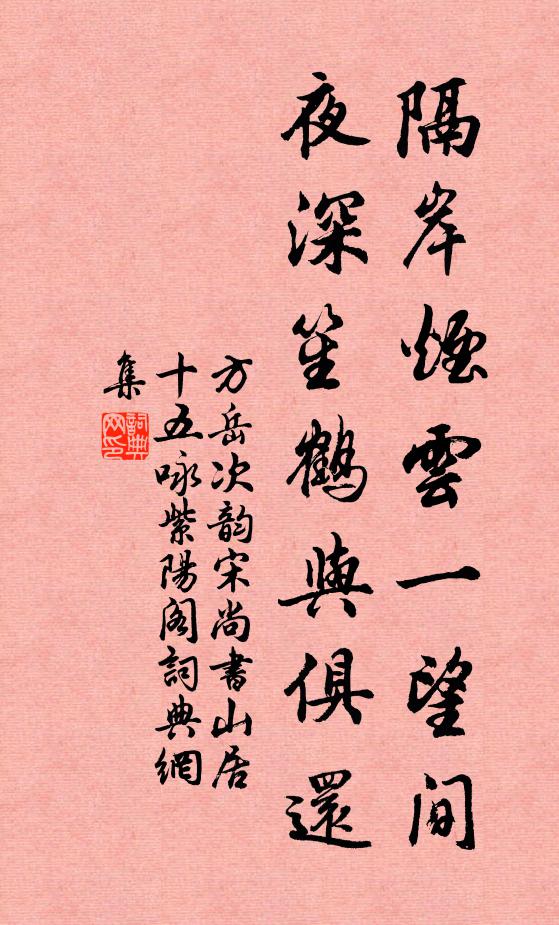 隔岸煙雲一望间
夜深笙鶴與俱還
方岳次韵宋尚書山居
十五咏紫陽阁詞典網
集
詞典
网印